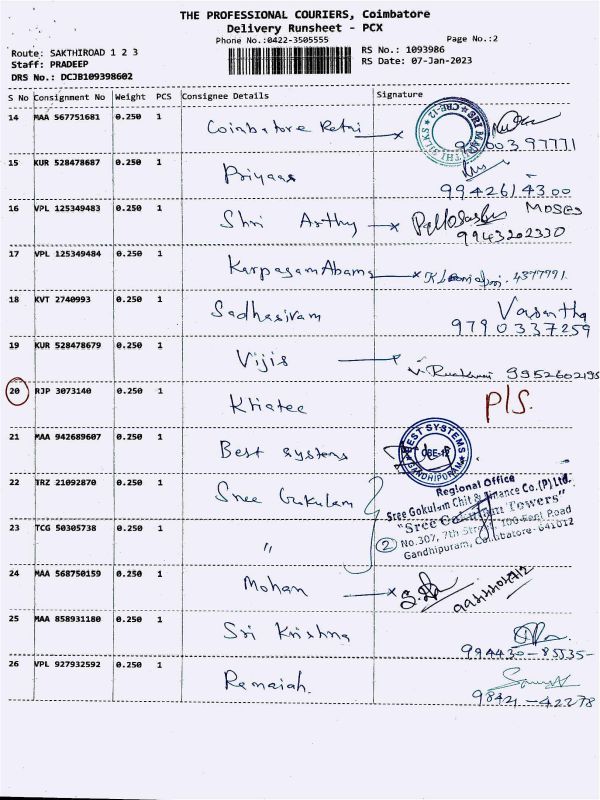 THE PROFESSIONAL COURIERS, Coimbatore
Delivery Runsheet - PCX
Phone No.:0422-3505555
Page No.:2
Route: SAKTHIROAD 1 2 3
RS No.: 1093986
Staff: PRADEEP
RS Date: 07-Jan-2023
DRS No.: DCJB109398602
S No Consignment No Weight PCS Consignee Details Signature
14 MAA 567751681 0.250 1 Coimbatore Retai
15 KUR 528478687 0.250 1 Priyaas
9942614300
16 VPL 125349483 0.250 1 Shri Arthy MOSES
9943202330
17 VPL 125349484 0.250 1 Karpagam Abams 4377791
18 KVT 2740993 0.250 1 Sadhasivam Vasantha
9790337259
19 KUR 528478679 0.250 1 Vijis
20 RJP 3073140 0.250 1 Khatee P/S.
21 MAA 942689607 0.250 1 Best systems BEST SYSTEMS CBE-12 GANDHIPURAM
22 TRZ 21092870 0.250 1 Sree Gukulam Regional Office
Sree Gokulam Chit & Finance Co.(P) Ltd.
"Sree Gokulam Towers"
23 TCG 50305738 0.250 1 " 2 No.307, 7th Street, 100 Feet Road
Gandhipuram, Coimbatore-641012
24 MAA 568750159 0.250 1 Mohan
25 MAA 858931180 0.250 1 Sri Krishna
994430-85535-
26 VPL 927932592 0.250 1 Ramaiah.
98421-42278